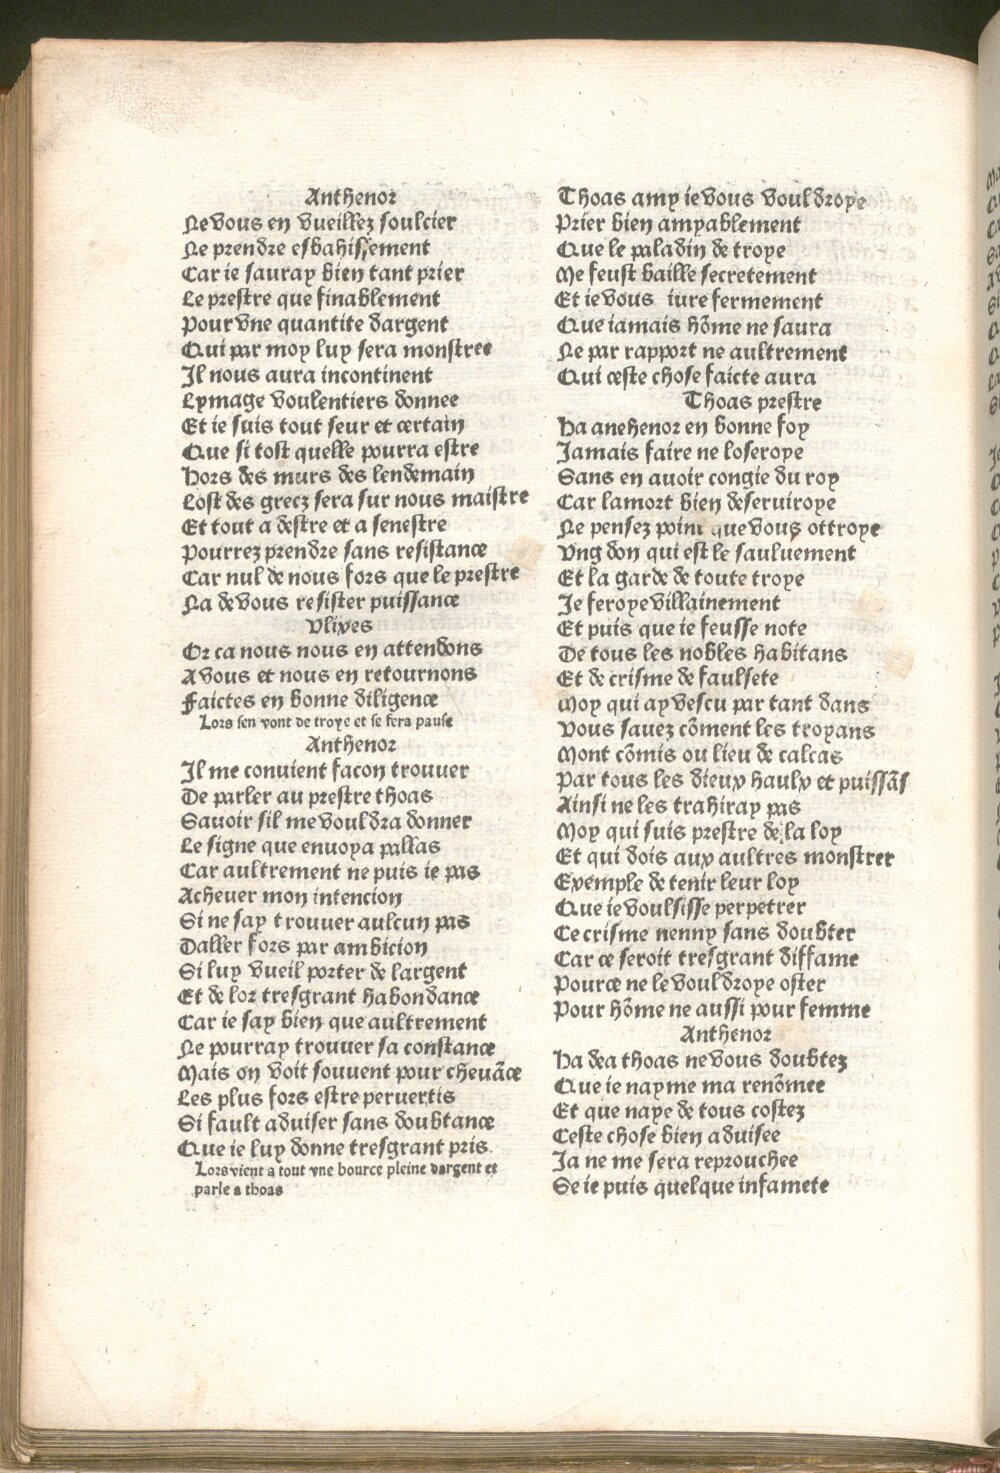 Anthenor
Ne vous en vueillez soulcier
Ne prendre esbahissement
Car ie sauray bien tant prier
Le prestre que finablement
Pour vne quantite dargent
Qui par moy luy sera monstree
Il nous aura incontinent
Lymage voulentiers donnee
Et ie suis tout seur et certain
Que si tost quelle pourra estre
Hors des murs des lendemain
Lost des grecz sera sur nous maistre
Et tout a destre et a senestre
Pourrez prendre sans resistance
Car nul de nous fors que le prestre
Na de vous resister puissance
Vlixes
Or ca nous nous en attendons
A vous et nous en retournons
Faictes en bonne diligence
Lors sen vont de troye et se fera pause
Anthenor
Il me conuient facon trouuer
De parler au prestre thoas
Sauoir sil me vouldra donner
Le signe que enuoya pallas
Car aultrement ne puis ie pas
Acheuer mon intencion
Si ne say trouuer aulcun pas
Daller fors par ambicion
Si luy vueil porter de largent
Et de lor tresgrant habondance
Car ie say bien que aultrement
Ne pourray trouuer sa constance
Mais on voit souuent pour cheuãce
Les plus fors estre peruertis
Si fault aduiser sans doubtance
Que ie luy donne tresgrant pris.
Lors vient a tout vne bource pleine dargent et
parle a thoas
Thoas amy ie vous vouldroye
Prier bien amyablement
Que le paladin de troye
Me feust baille secretement
Et ie vous iure fermement
Que iamais hõme ne saura
Ne par rapport ne aultrement
Qui ceste chose faicte aura
Thoas prestre
Ha anehenor en bonne foy
Jamais faire ne loseroye
Sans en auoir congie du roy
Car lamort bien deseruiroye
Ne pensez point que vous ottroye
Vng don qui est le sauluement
Et la garde de toute troye
Je feroye villainement
Et puis que ie feusse note
De tous les nobles habitans
Et de crisme de faulsete
Moy qui ay vescu par tant dans
Vous sauez cõment les troyans
Mont cõmis ou lieu de calcas
Par tous les dieux haulx et puissãs
Ainsi ne les trahiray pas
Moy qui suis prestre de la loy
Et qui dois aux aultres monstrer
Exemple de tenir leur loy
Que ie voulsisse perpetrer
Ce crisme nenny sans doubter
Car ce seroit tresgrant diffame
Pource ne le vouldroye oster
Pour hõme ne aussi pour femme
Anthenor
Ha dea thoas ne vous doubtez
Que ie nayme ma renõmee
Et que naye de tous costez
Ceste chose bien aduisee
Ja ne me sera reprouchee
Se ie puis quelque infamete